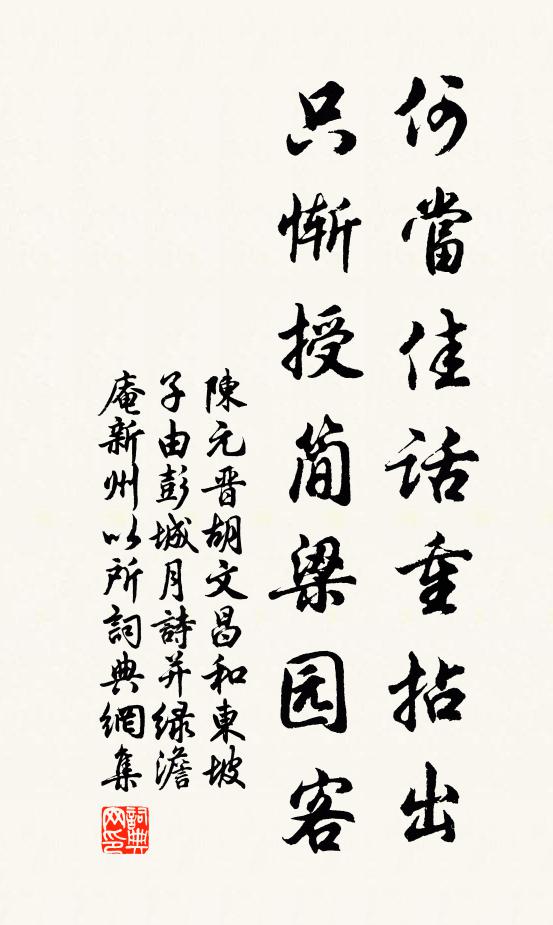 何當佳話重拈出
只慚授简梁园客
陳元晋胡文昌和東坡
子由彭城月詩并緑澹
庵新州以所詞典網集
詞典
网印